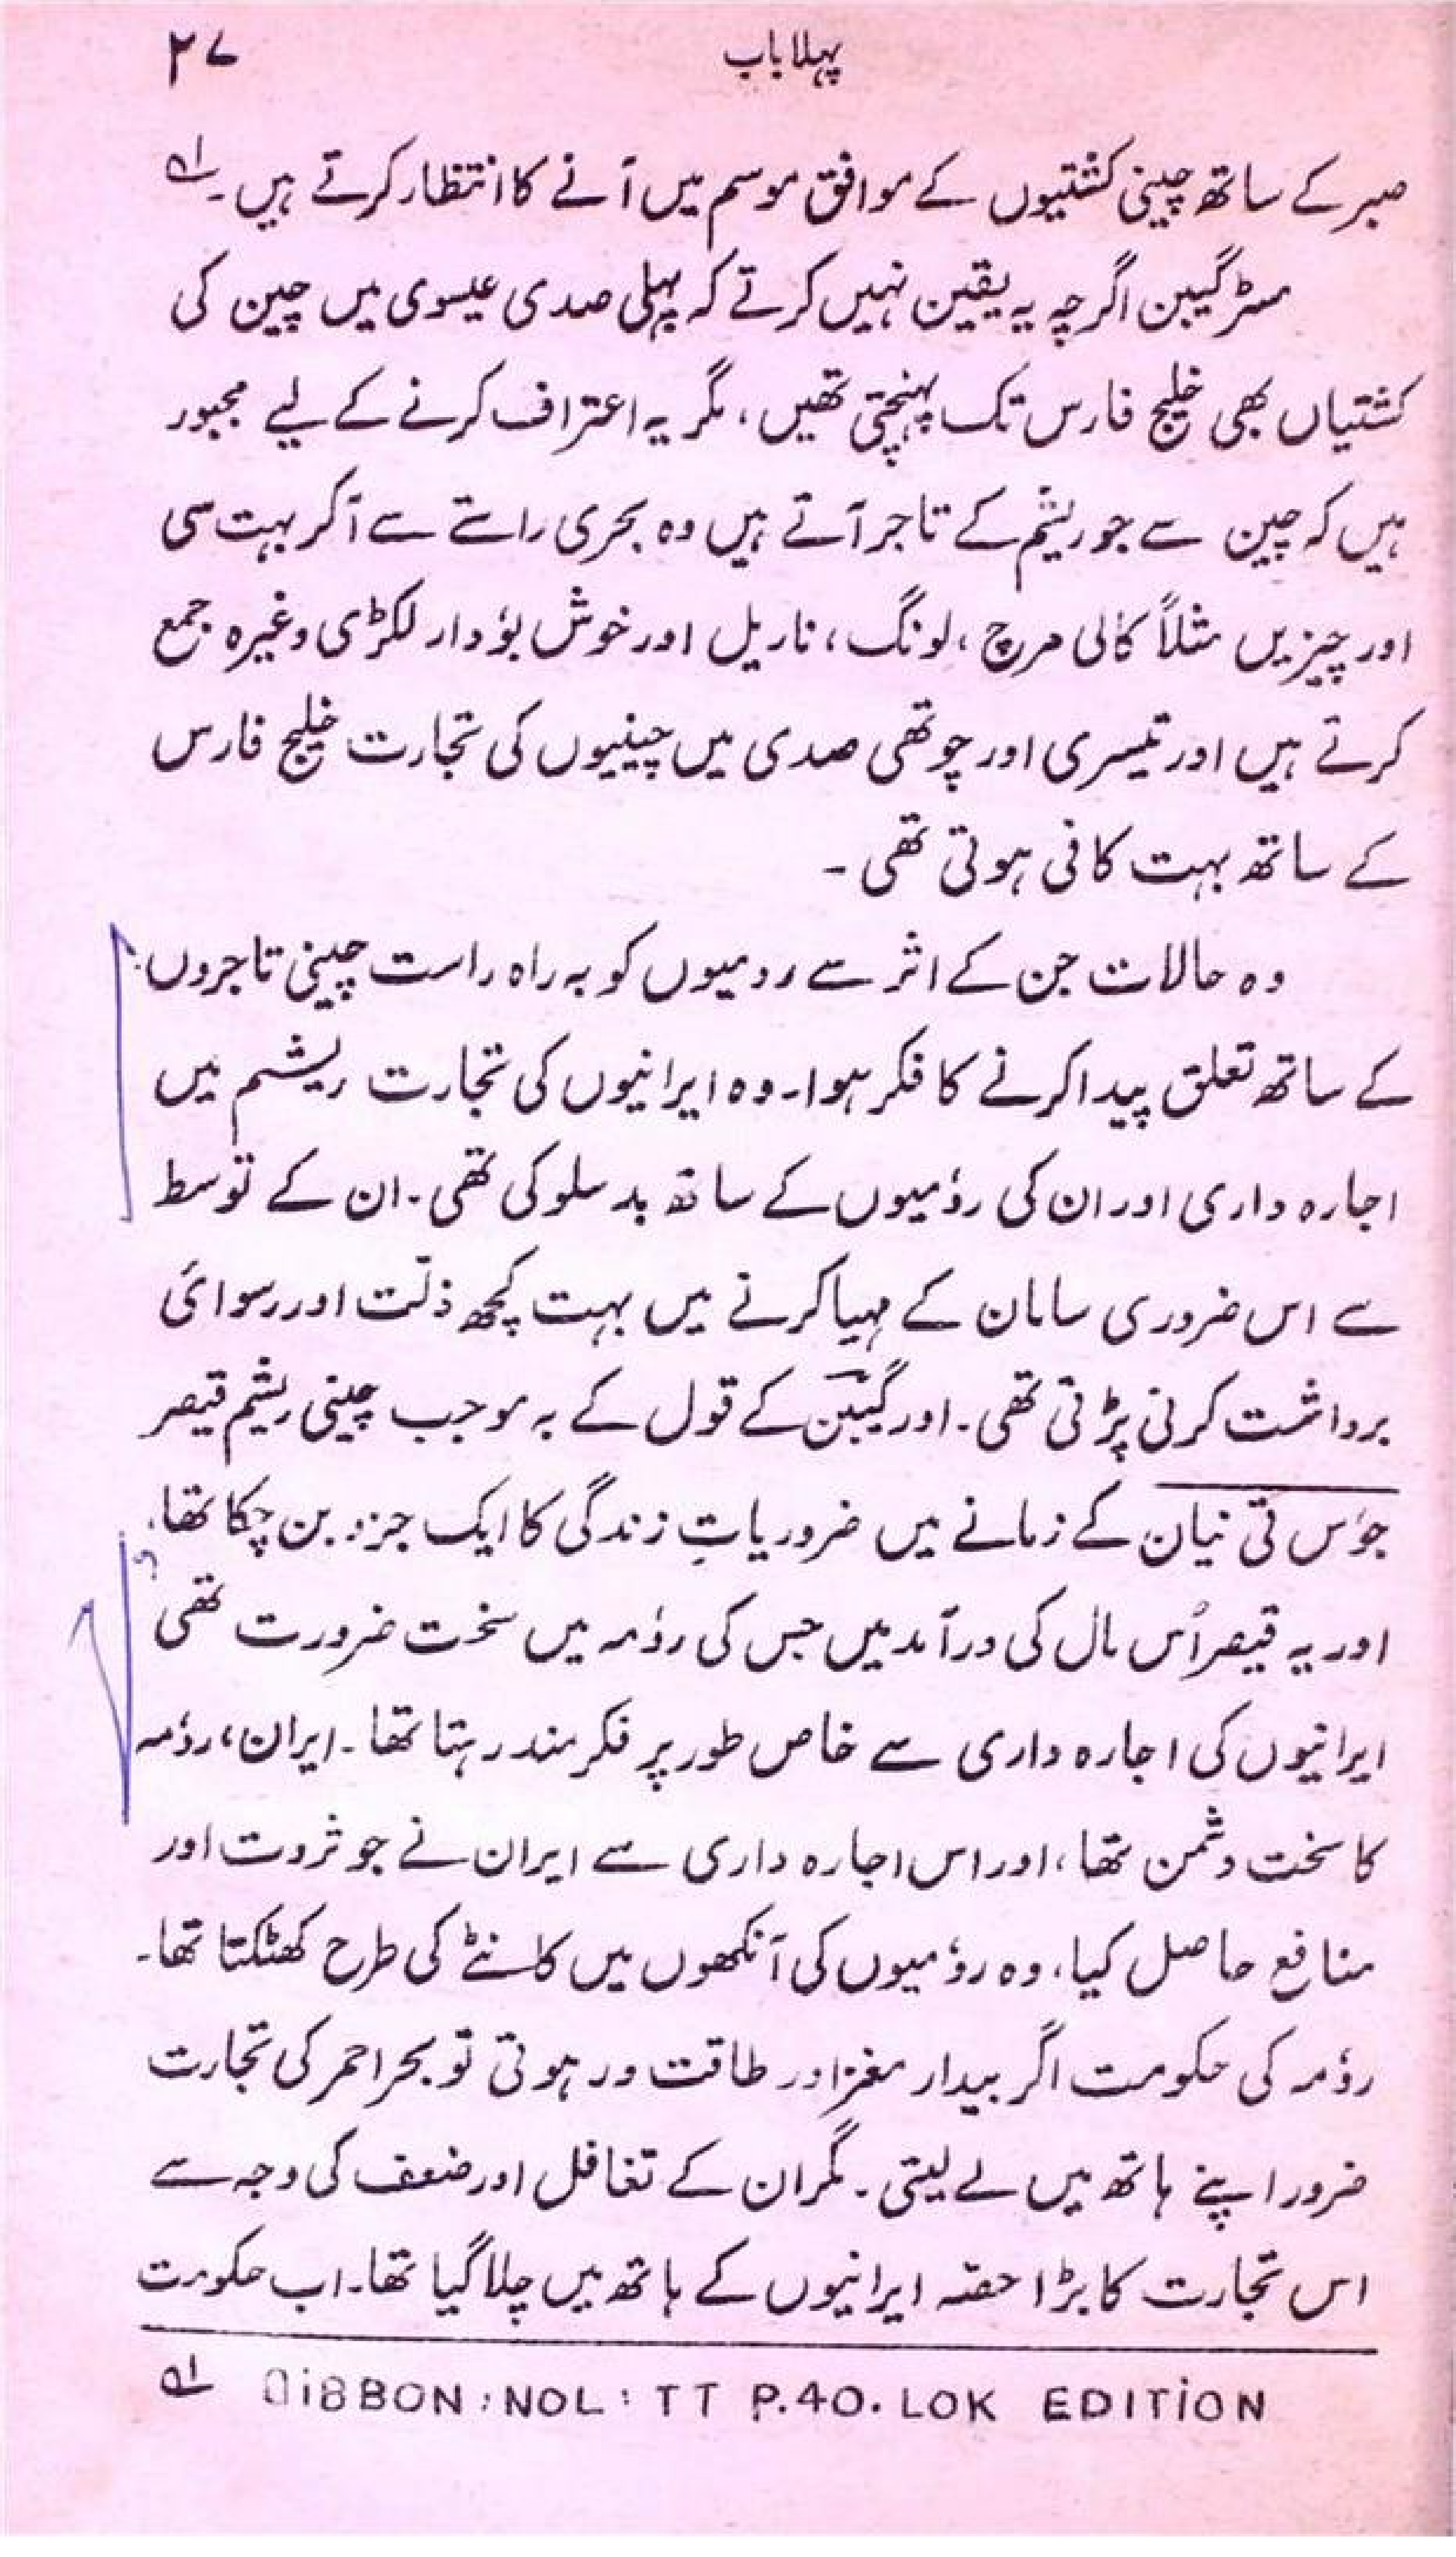 پہلا باب ۲۷
صبر کے ساتھ چینی کشتیوں کے موافق موسم میں آنے کا انتظار کرتے ہیں۔ ۱ھ
مسٹر گیبن اگرچہ یہ یقین نہیں کرتے کہ پہلی صدی عیسوی میں چین کی
کشتیاں بھی خلیج فارس تک پہنچتی تھیں، مگر یہ اعتراف کرنے کے لیے مجبور
ہیں کہ چین سے جو ریشم کے تاجر آتے ہیں وہ بحری راستے سے آکر بہت سی
اور چیزیں مثلاً کالی مرچ، لونگ، ناریل اور خوش بوٗدار لکڑی وغیرہ جمع
کرتے ہیں اور تیسری اور چوتھی صدی میں چینیوں کی تجارت خلیج فارس
کے ساتھ بہت کافی ہوتی تھی۔
وہ حالات جن کے اثر سے رومیوں کو بہ راہ راست چینی تاجروں
کے ساتھ تعلق پیدا کرنے کا فکر ہوا۔ وہ ایرانیوں کی تجارت ریشم میں
اجارہ داری اور ان کی روٗمیوں کے ساتھ بدسلوکی تھی۔ ان کے توسط
سے اس ضروری سامان کے مہیا کرنے میں بہت کچھ ذلّت اور رسوائی
برداشت کرنی پڑتی تھی۔ اور گیبن کے قول کے بہ موجب چینی ریشم قیصر
جوٗس تی نیان کے زمانے میں ضروریاتِ زندگی کا ایک جزو بن چکا تھا،
اور یہ قیصر اُس مال کی درآمد میں جس کی روٗمہ میں سخت ضرورت تھی
ایرانیوں کی اجارہ داری سے خاص طور پر فکر مند رہتا تھا۔ ایران، روٗمہ
کا سخت دشمن تھا، اور اس اجارہ داری سے ایران نے جو ثروت اور
منافع حاصل کیا، وہ روٗمیوں کی آنکھوں میں کانٹے کی طرح کھٹکتا تھا۔
روٗمہ کی حکومت اگر بیدار مغز اور طاقت ور ہوتی تو بحر احمر کی تجارت
ضرور اپنے ہاتھ میں لے لیتی۔ مگر ان کے تغافل اور ضعف کی وجہ سے
اس تجارت کا بڑا حصّہ ایرانیوں کے ہاتھ میں چلا گیا تھا۔ اب حکومت
۱ھ GiBBON, NOL: TT P.40. LOK EDITiON